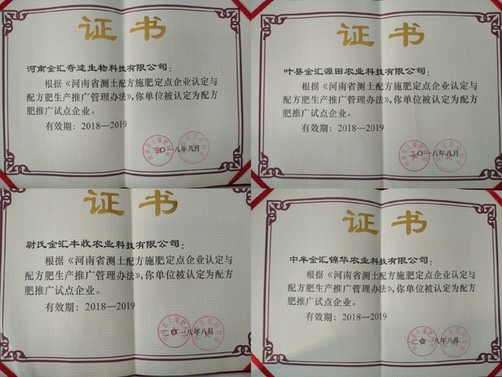 证书
河南金汇奇迹生物科技有限公司：
根据《河南省测土配方施肥定点企业认定与
配方肥生产推广管理办法》，你单位被认定为配方
肥推广试点企业。
有效期：2018—2019
二〇一八年八月
证书
叶县金汇源田农业科技有限公司：
根据《河南省测土配方施肥定点企业认定与
配方肥生产推广管理办法》，你单位被认定为配方
肥推广试点企业。
有效期：2018—2019
二〇一八年八月
证书
尉氏金汇丰收农业科技有限公司：
根据《河南省测土配方施肥定点企业认定与
配方肥生产推广管理办法》，你单位被认定为配方
肥推广试点企业。
有效期：2018—2019
二〇一八年八月
证书
中牟金汇锦华农业科技有限公司：
根据《河南省测土配方施肥定点企业认定与
配方肥生产推广管理办法》，你单位被认定为配方
肥推广试点企业。
有效期：2018—2019
二〇一八年八月